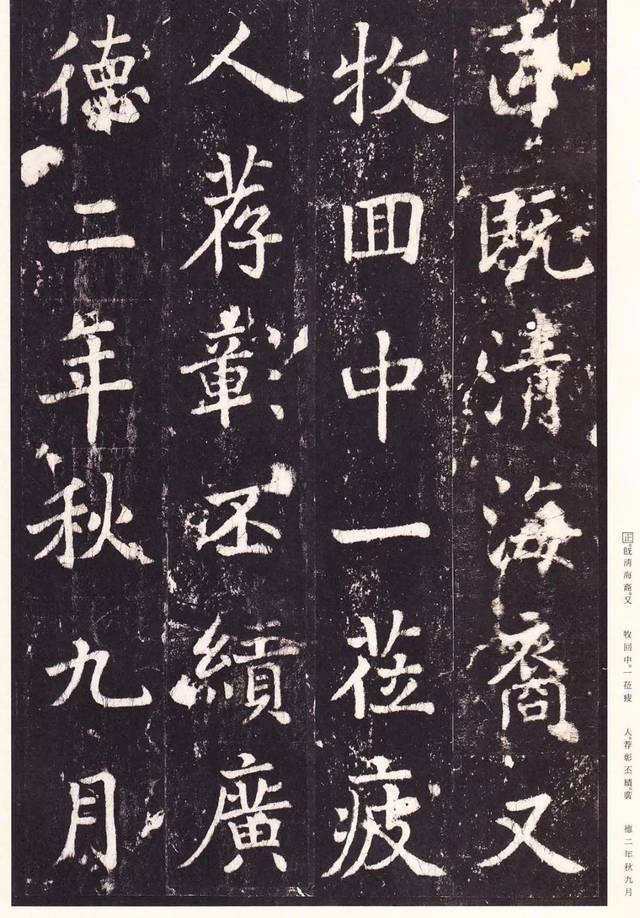 正既清海裔又
牧囬中一莅疲
人荐彰丕績廣
德二年秋九月
正。既清海裔。又　牧回中。一莅疲　人。荐彰丕績。廣　德二年秋九月